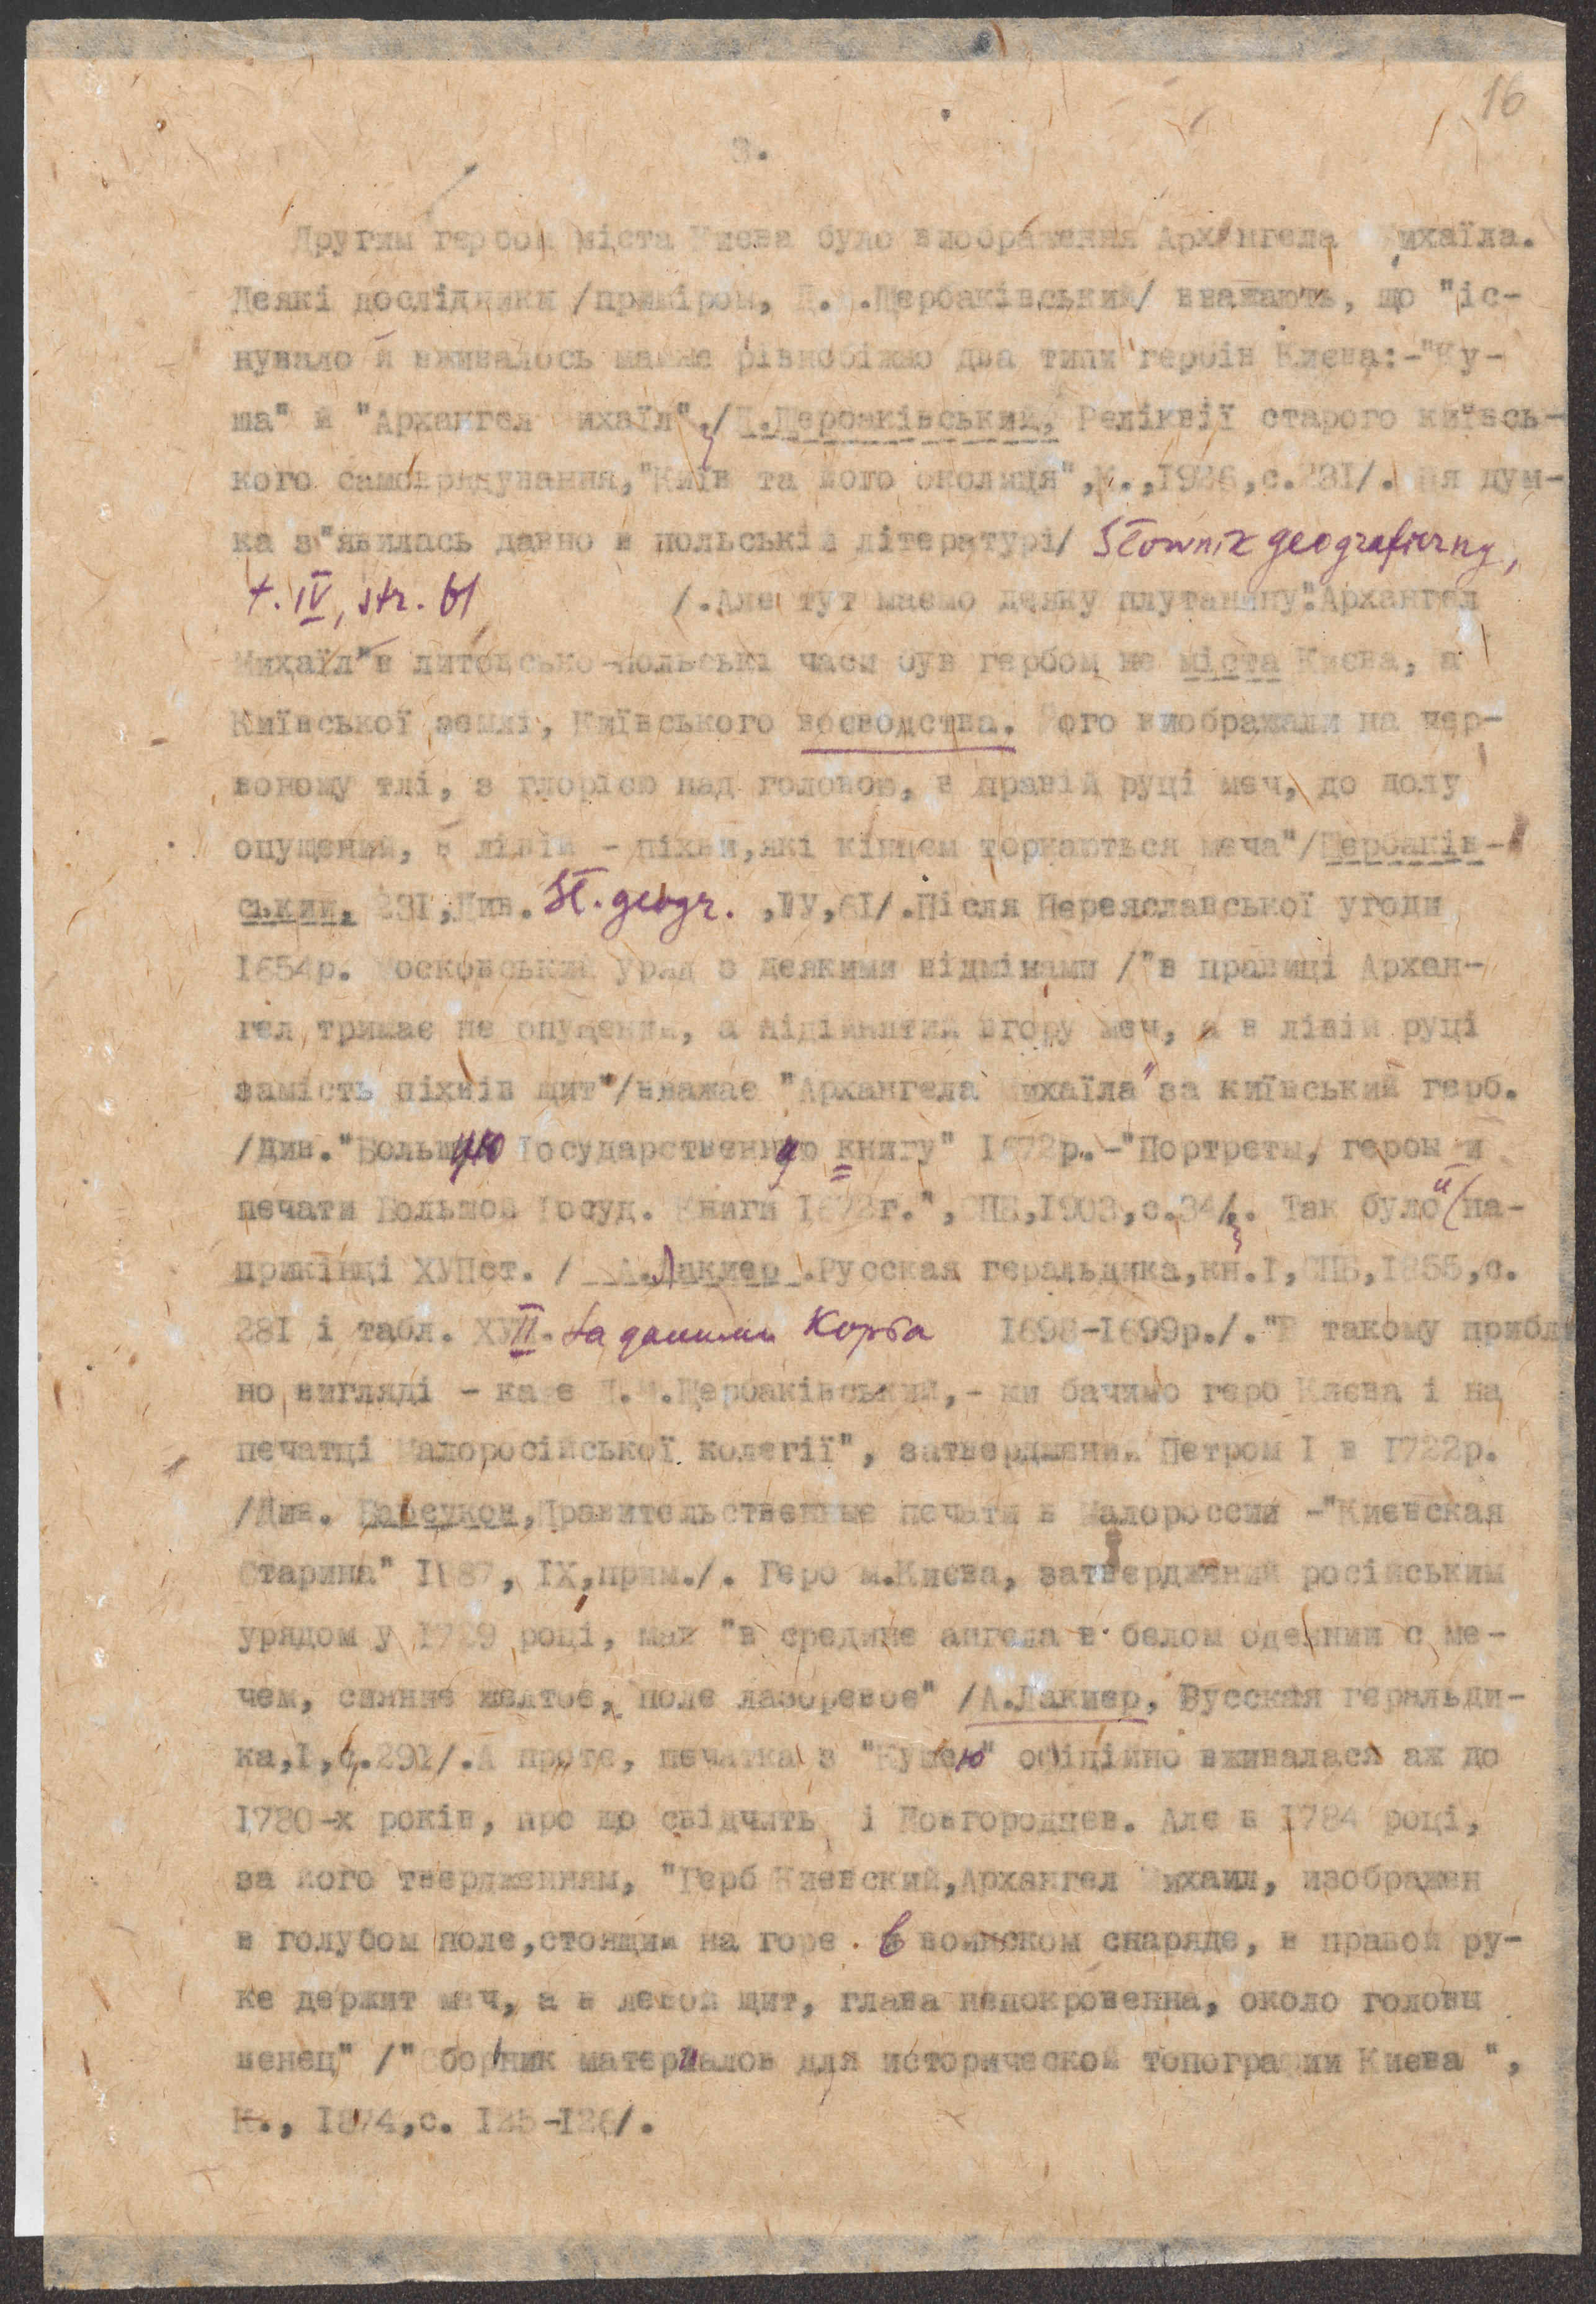 16
3.
Другим гербом міста Києва було виображення Архангела Михаїла.
Деякі дослідники /приміром, Д. .Щербаківський/ вважають, що "іс-
нувало й вживалось майже рівнобіжно два типи гербів Києва:-"Ку-
ша" й "Архангел Михаїл"./Д.Щербаківський, Реліквії старого київсь-
кого самоврядування,"Київ та його околиця",К.,1926,с.231/. Ця дум-
ка з"явилась давно в польській літературі/ Słownik geograficzny,
t. IV, str. 61 /.Але тут маємо деяку плутанину."Архангел
Михаїл"в литовсько-польські часи був гербом не міста Києва, а
Київської землі, Київського воєводства. Його виображали на чер-
воному тлі, з глорією над головою, в правій руці меч, до долу
опущений, в лівій - піхви,які кінцем торкаються меча"/Щербаків-
ський, 231,Див. Sł. geogr. ,ІУ,61/.Після Переяславської угоди
1654р. Московський уряд з деякими відмінами /"в правиці Архан-
гел тримає не опущений, а підійнятий вгору меч, а в лівій руці
замість піхвів щит"/вважає "Архангела Михаїла" за київський герб.
/Див."Большую Государственную книгу" 1672р.-"Портреты, гербы и
печати Большой Госуд. Книги 1672г.",СПБ,1903,с.34/. Так було й на-
прикінці ХУПст. / А.Лакиер .Русская геральдика,кн.І,СПБ,1855,с.
281 і табл. ХУІІ. За даними Корба 1698-1699р./."В такому прибл
но вигляді - каже Д.М.Щербаківський,- ми бачимо герб Києва і на
печатці Малоросійської колегії", затверджений Петром І в 1722р.
/Див. Барсуков,Правительственные печати в Малороссии -"Киевская
Старина" 1887, ІХ,прим./. Герб м.Києва, затверджений російським
урядом у 1729 році, мав "в средине ангела в белом одеянии с ме-
чем, сияние желтое, поле лазоревое" /А.Лакиер, Русская геральди-
ка,І,с.291/.А проте, печатка з "Кушею" офіційно вживалася аж до
1780-х років, про що свідчить і Новгородцев. Але в 1784 році,
за його твердженням, "Герб Киевский,Архангел Михаил, изображен
в голубом поле,стоящий на горе в воинском снаряде, в правой ру-
ке держит меч, а в левой щит, глава непокровенна, около головы
венец" /"Сборник материалов для исторической топографии Киева ",
К., 1874,с. 125-126/.